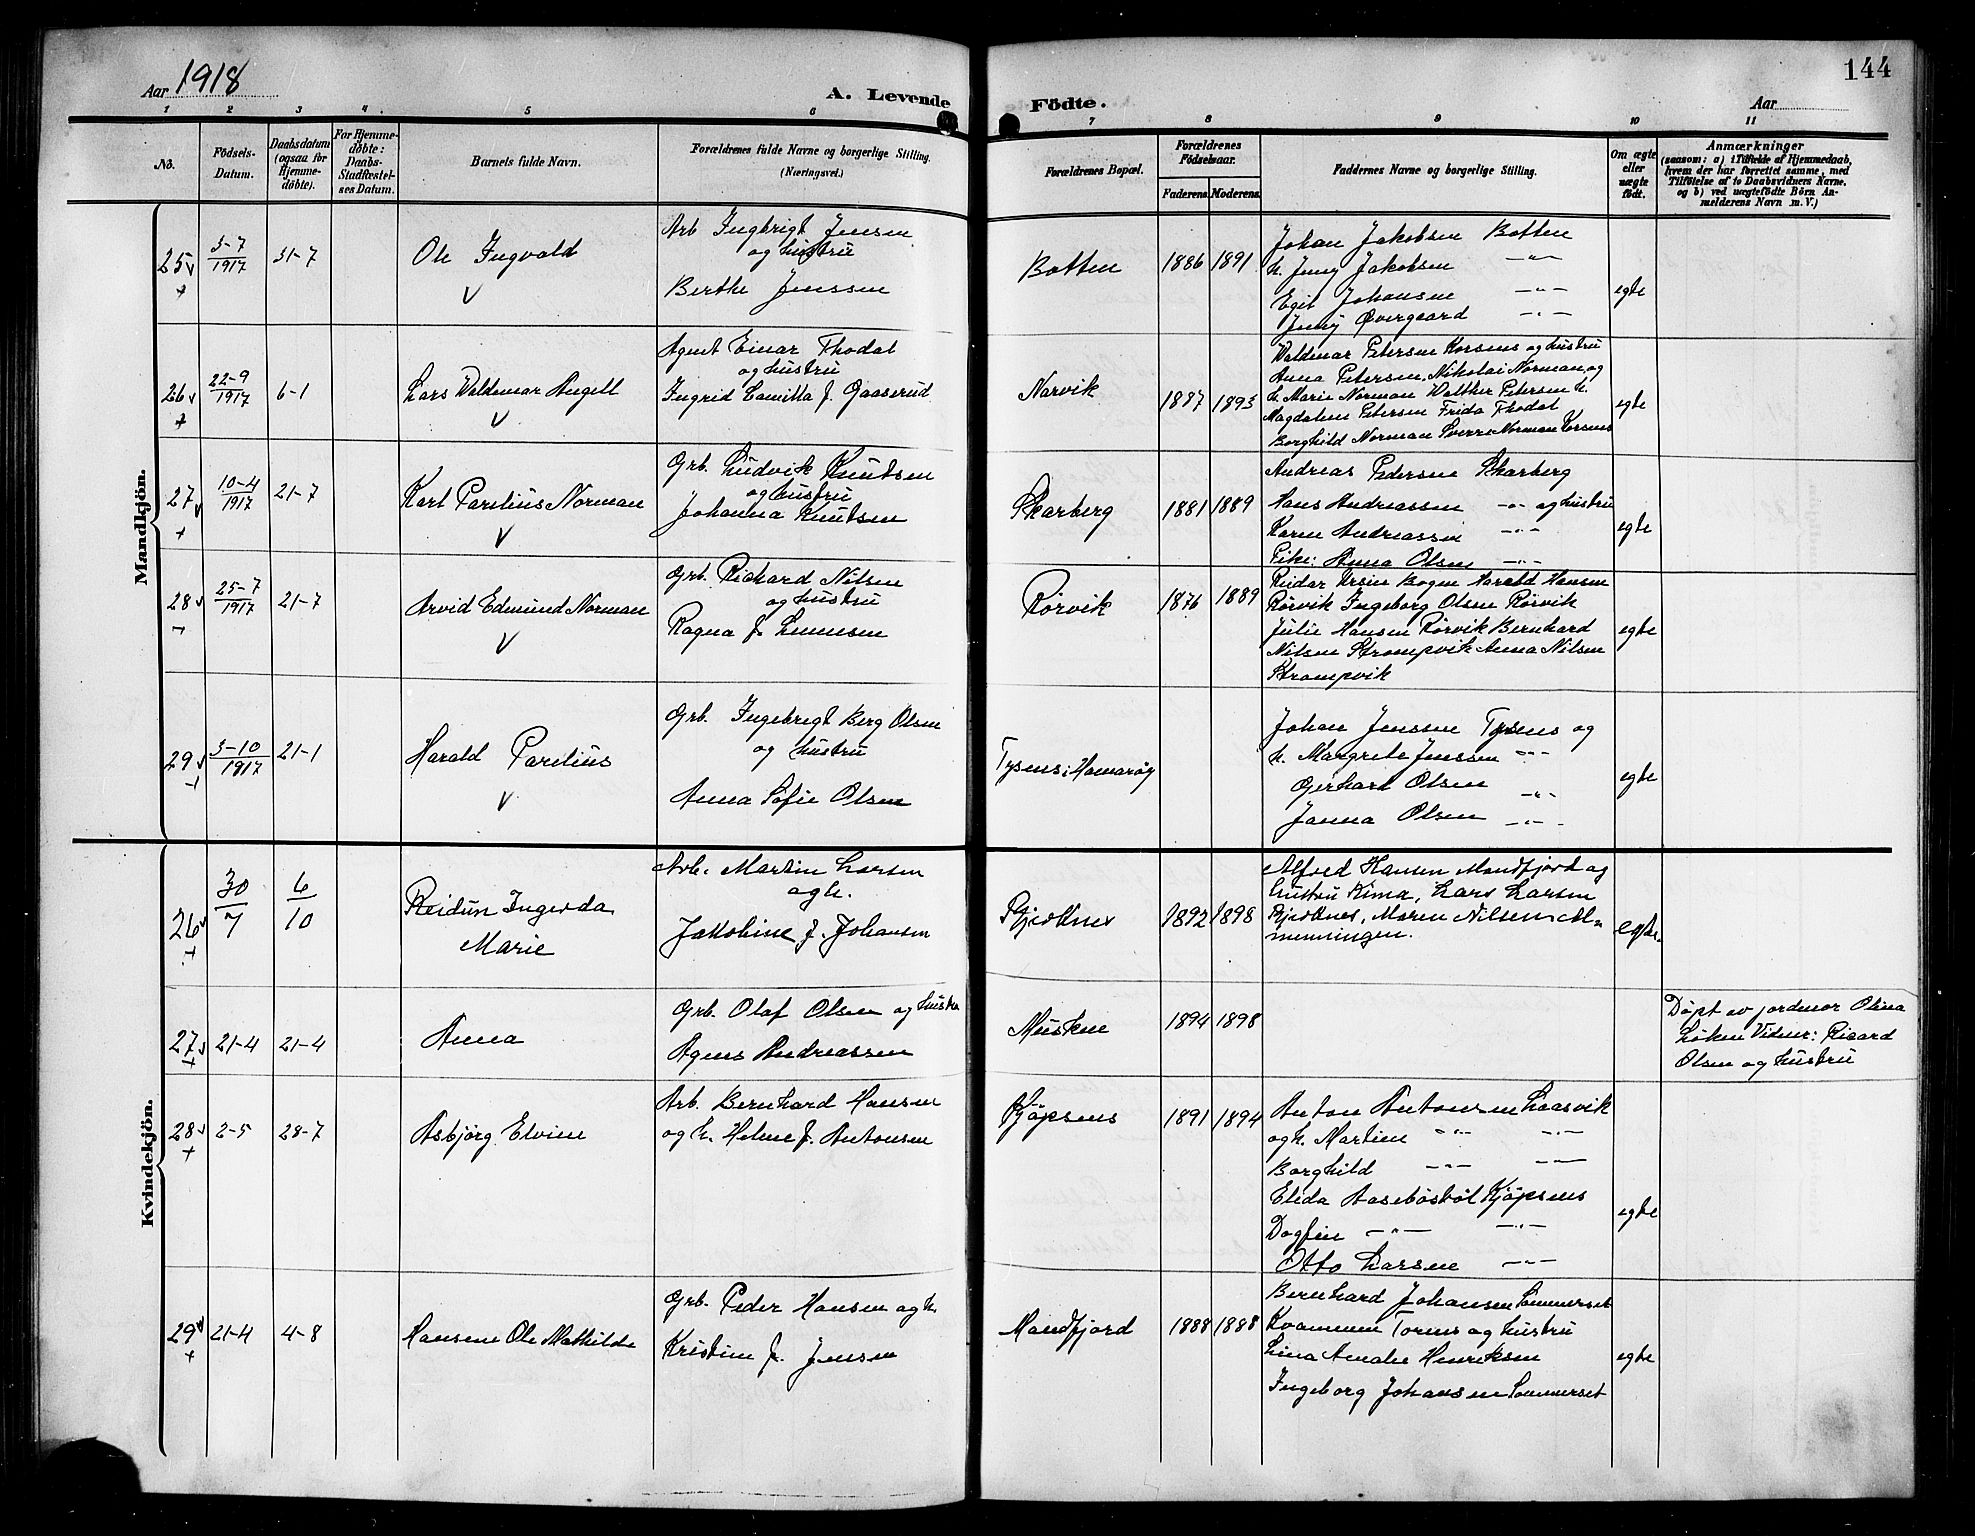 144
Aar 1918
A. Levende Födte.
Aar
1 2 3 4 5 6 7 8 9 10 11
Nö.
Födsels-Datum.
Daabsdatum (ogsaa for Hjemme-döbte).
For Hjemme-döbte: Daabs-Stadfæstel-ses Datum.
Barnets fulde Navn.
Forældrenes fulde Navne og borgerlige Stilling. (Næringsvei.)
Forældrenes Bopæl.
Forældrenes Födselsaar.
Faderens. Moderens.
Faddernes Navne og borgerlige Stilling.
Om ægte eller uægte födt.
Anmærkninger
(saasom: a) i Tilfælde af Hjemmedaab, hvem der har forrettet samme, med Tilföielse af to Daabsvidners Navne, og b) ved uægtefödte Börn An-melderens Navn m. V.)
Mandkjön.
25 3-7 1917 31-7
Ole Ingvald
Arb Ingbrigt Jensen
og hustru
Berthe Jenssen
Botten 1886 1891
Johan Jakobsen Botten
h. Jenny Jakobsen -"-
Egil Johansen -"-
Jenny Øvergaard -"-
egte
26 22-9 1917 6-1
Lars Waldemar Angell
Agent Einar Thodal
og hustru
Ingrid Camilla f. Gaaserud
Narvik 1887 1893
Waldemar Petersen Korsnes og hustru
Anna Petersen, Nikolai Norman og
h. Marie Norman Walther Petersen h.
Magdalene Petersen Frida Thodal
Borghild Norman Sverre Norman Korsnes
egte
27 10-4 1917 21-7
Karl Parelius Norman
Grb. Ludvik Knutsen
og hustru
Johanna Knutsen
Skarberg 1881 1889
Andreas Pedersen Skarberg
Hans Andreassen -"- og hustru
Karen Andreassen -"-
Pike: Anna Olsen -"-
egte
28 25-7 1917 21-7
Arvid Edmund Norman
Grb. Richard Nilsen
og hustru
Ragna f.
Rørvik 1876 1889
Reidar Ursin Bogen Harald Hansen
Rörvik Ingeborg Olsen Rörvik
Julie Hansen Rörvik Bernhard
Nilsen Strompvik Anna Nilsen
Strompvik
egte
29 3-10 1917 21-1
Harald Parelius
Grb. Ingebrigt Berg Olsen
og hustru
Anna Sofie Olsen
Tysnes i Hamarøy
Johan Jenssen Tysnes og
h. Margrete Jenssen -"-
Gerhart Olsen -"-
Janna Olsen -"-
egte
Kvindekjön.
26 30/7 6/10
Reidun Ingerda
Marie
Arb. Martin Larsen
og h.
Jakobine f. Johansen
1892 1898
Alfred Hansen Mandfjord og
hustru Kima, Lars Larsen
Maren Nilsen Al-
menningen.
egte
27 21-4 21-4
Anna
Grb. Olaf Olsen og hustru
Agnes Andreassen
Muskne 1894 1898
Døpt av jordmor Olina
Løken Vidner: Ricard
Olsen og hustru
28 2-5 28-7
Asbjörg Elvine
Arb. Bernhard Hansen
og h. Helene f. Antonsen
Kjöpsnes 1891 1894
Anton Antonsen Laasvik
og h. Martine -"- -"-
Borghild -"- -"-
Elida Aasebøstöl Kjöpsnes
Dagfin -"- -"-
Otto Larsen -"-
egte
29 21-4 4-8
Hansene Ole Mathilde
Grb. Peder Hansen og h.
Kristine f. Jensen
Mandfjord 1888 1888
Bernhard Johansen Sommerset
og hustru
Lina Amalie Henriksen
Ingeborg Johansen Sommerset
egte